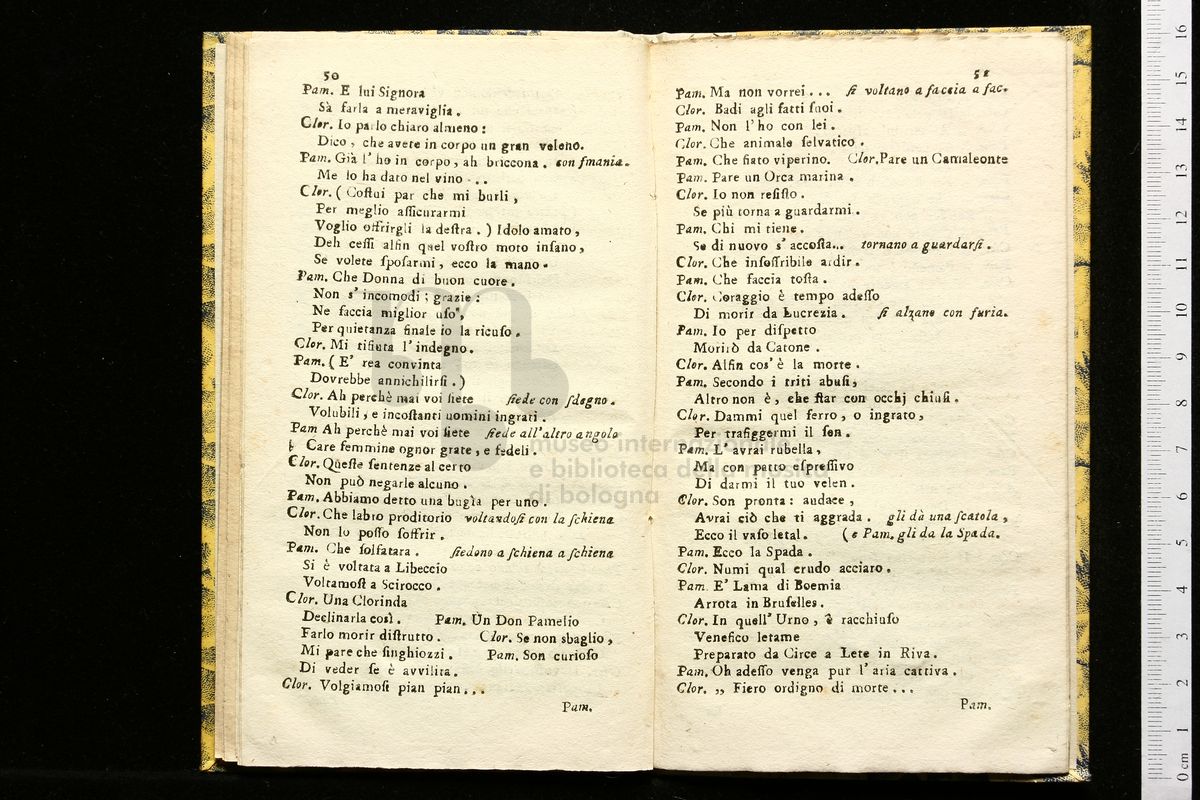 50
Pam. E lui Signora
Sà farla a meraviglia.
Clor. Io parlo chiaro almeno:
Dico, che avete in corpo un gran veleno.
Pam. Già l'ho in corpo, ah briccona. con smania.
Me lo ha dato nel vino...
Clor. (Costui par che mi burli,
Per meglio assicurarmi
Voglio offrirgli la destra.) Idolo amato,
Deh cessi alfin quel vostro moto insano,
Se volete sposarmi, ecco la mano.
Pam. Che Donna di buon cuore.
Non s'incomodi; grazie:
Ne faccia miglior uso,
Per quietanza finale io la ricuso.
Clor. Mi rifiuta l'indegno.
Pam. (E' rea convinta
Dovrebbe annichilirsi.)
Clor. Ah perchè mai voi siete siede con sdegno.
Volubili, e incostanti uomini ingrati.
Pam Ah perchè mai voi siete siede all'altro angolo
Care femmine ognor grate, e fedeli.
Clor. Queste sentenze al certo
Non può negarle alcuno.
Pam. Abbiamo detto una bugìa per uno.
Clor. Che labro proditorio voltandosi con la schiena
Non lo posso soffrir.
Pam. Che solfatara. siedono a schiena a schiena
Si è voltata a Libeccio
Voltamosi a Scirocco.
Clor. Una Clorinda
Declinarla così. Pam. Un Don Pamelio
Farlo morir distrutto. Clor. Se non sbaglio,
Mi pare che singhiozzi. Pam. Son curioso
Di veder se è avvilita.
Clor. Volgiamosi pian pian...
Pam.
51
Pam. Ma non vorrei... si voltano a faccia a fac.
Clor. Badi agli fatti suoi.
Pam. Non l'ho con lei.
Clor. Che animale selvatico.
Pam. Che fiato viperino. Clor. Pare un Camaleonte
Pam. Pare un Orca marina.
Clor. Io non resisto.
Se più torna a guardarmi.
Pam. Chi mi tiene.
Se di nuovo s'accosta... tornano a guardarsi.
Clor. Che insoffribile ardir.
Pam. Che faccia tosta.
Clor. Coraggio è tempo adesso
Di morir da Lucrezia. si alzano con furia.
Pam. Io per dispetto
Morirò da Catone.
Clor. Alfin cos'è la morte.
Pam. Secondo i triti abusi,
Altro non è, che star con occhj chiusi.
Clor. Dammi quel ferro, o ingrato,
Per trafiggermi il sen.
Pam. L'avrai rubella,
Ma con patto espressivo
Di darmi il tuo velen.
Clor. Son pronta: audace,
Avrai ciò che ti aggrada. gli dà una scatola,
Ecco il vaso letal. (e Pam. gli da la Spada.
Pam. Ecco la Spada.
Clor. Numi qual crudo acciaro.
Pam. E' Lama di Boemia
Arrota in Bruselles.
Clor. In quell'Urno, è racchiuso
Venefico letame
Preparato da Circe a Lete in Riva.
Pam. Oh adesso venga pur l'aria cattiva.
Clor. „ Fiero ordigno di morte...
Pam.
museo internazionale
e biblioteca della musica
di bologna
0 cm 1 2 3 4 5 6 7 8 9 10 11 12 13 14 15 16